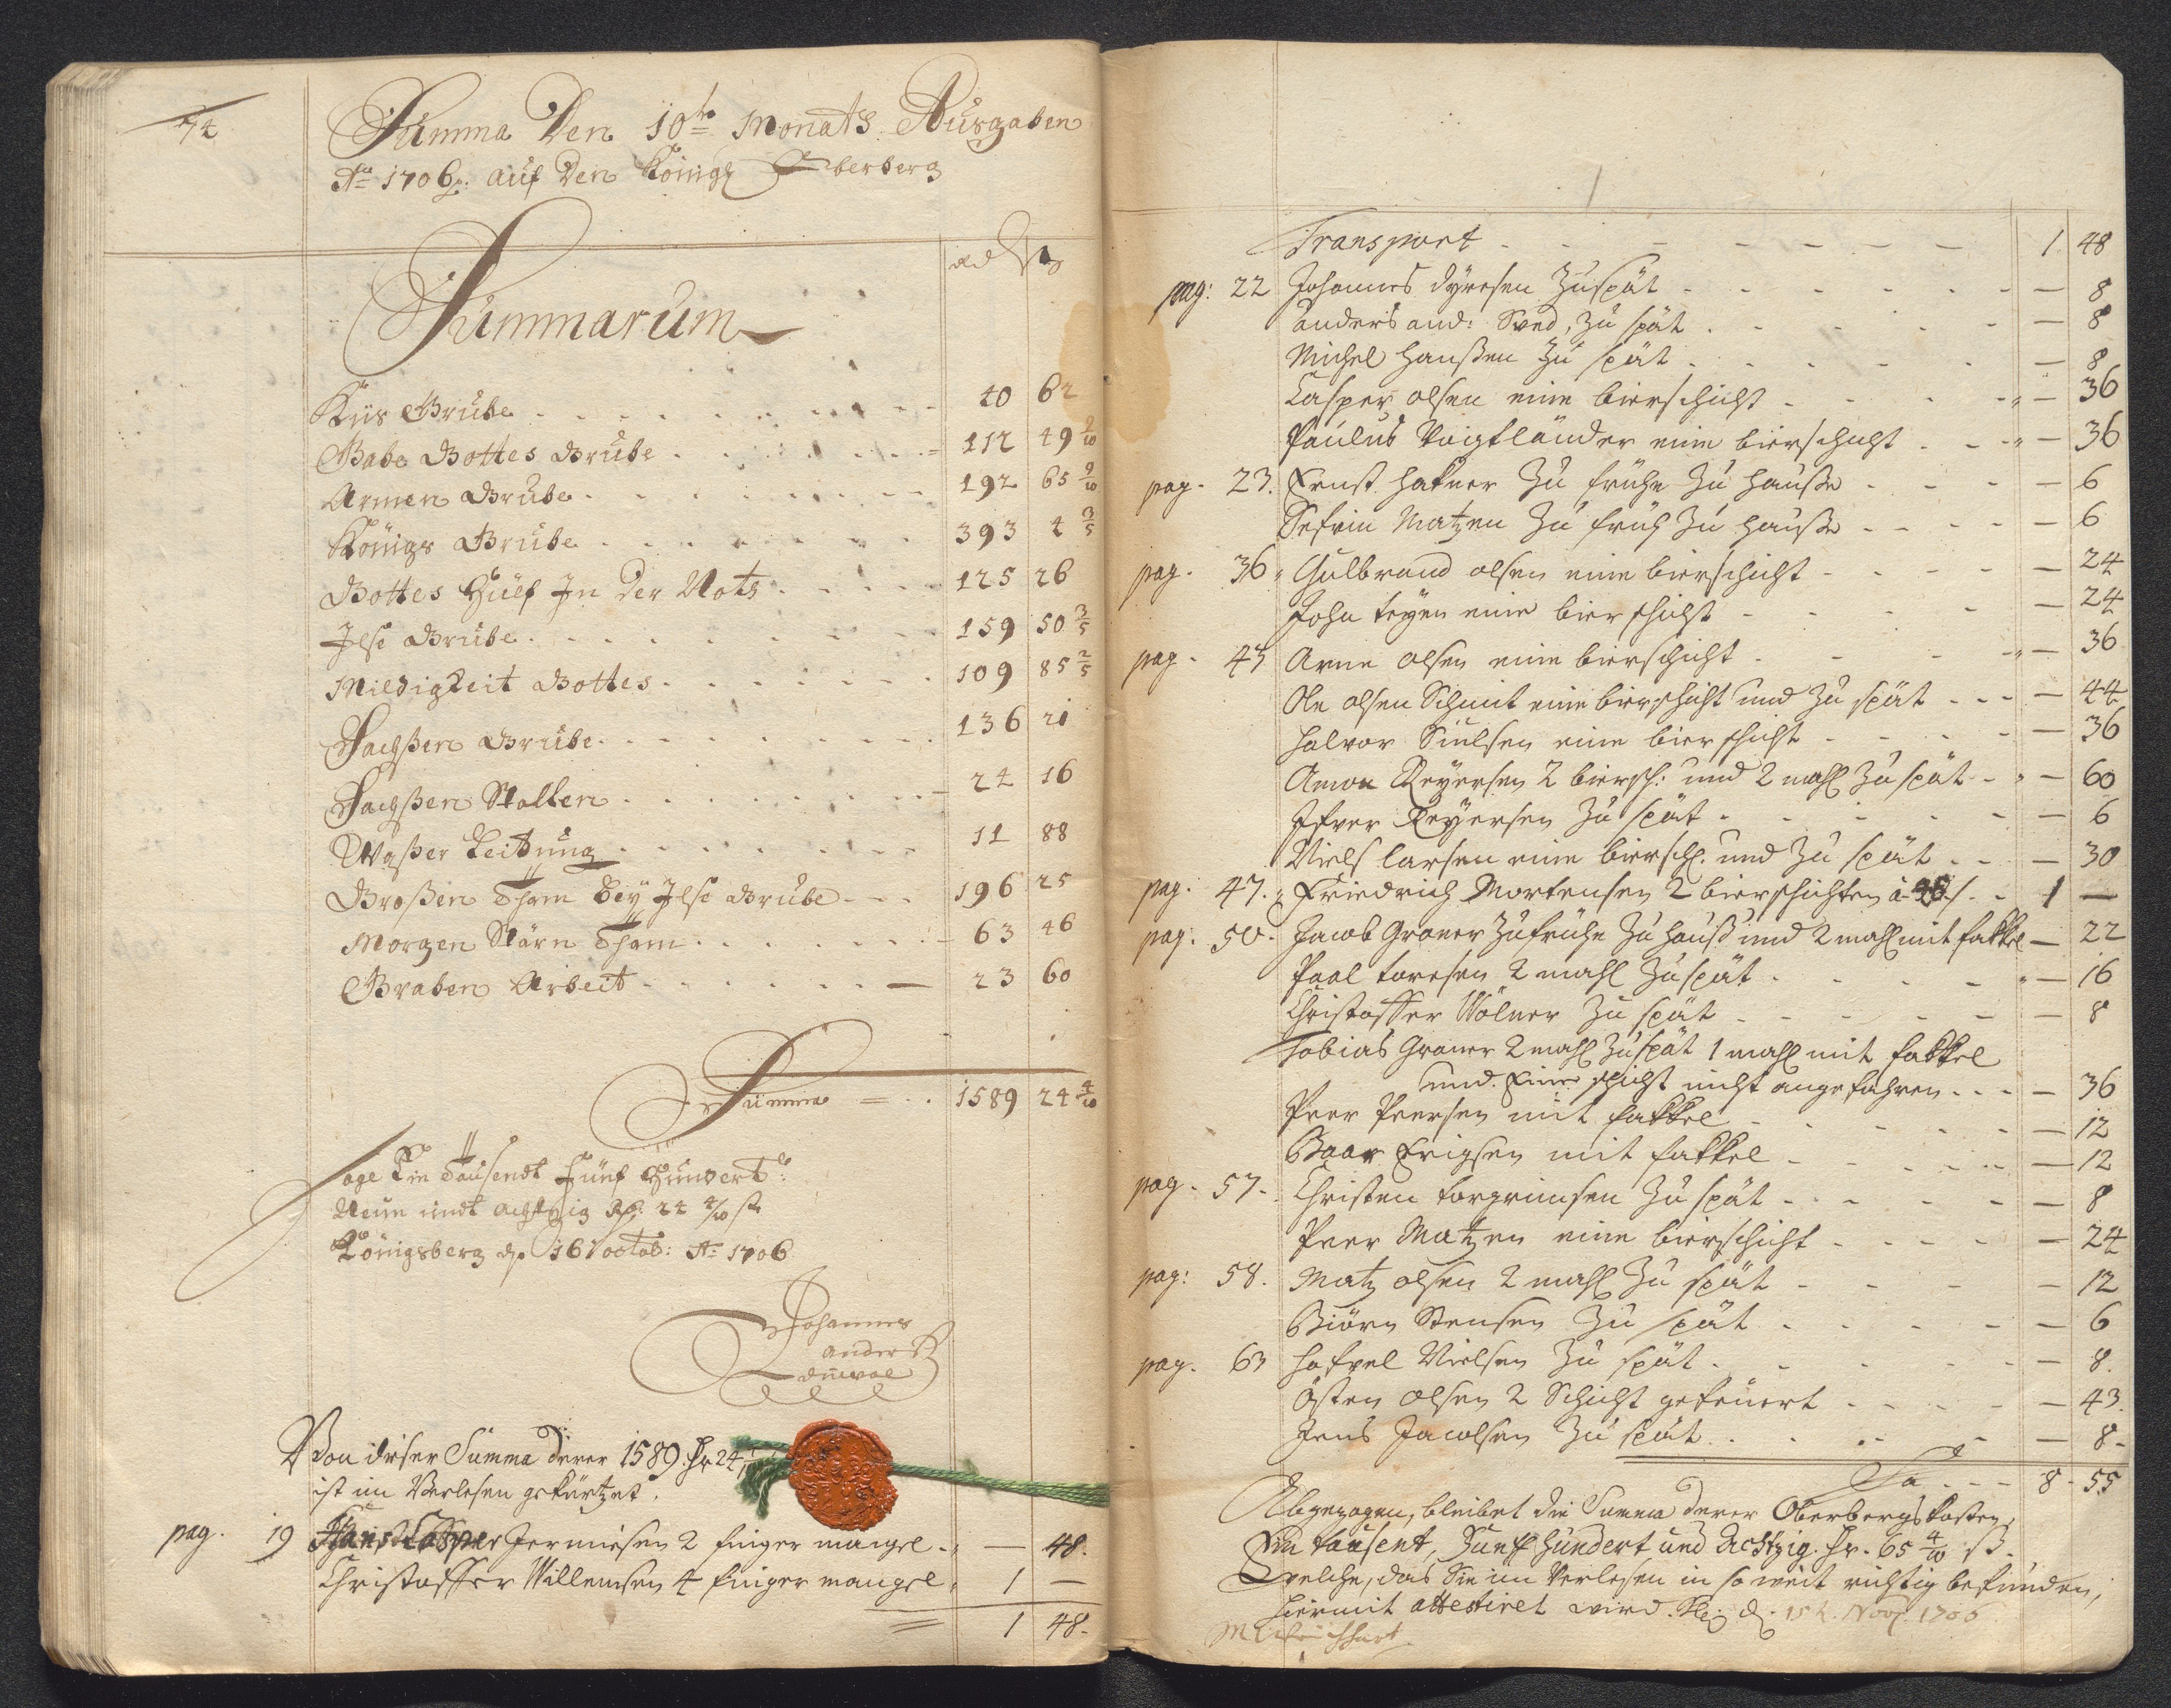 74
Summa Den 10te Monats Ausgaben
Ao 1706 auf Den Königl Oberberg
Rd ß
Summarum
Kiis Grube 40 62
Gabe Gottes Grube 112 49 9/10
Armen Grube 192 65 9/10
Königs Grube 393 4 3/5
Gottes Hülf In Der Noth 125 26
Ilse Grube 159 50 3/5
Mildigkeit Gottes 109 85 2/5
Sachßen Grube 136 21
Sachßen Stollen 24 16
Waßer Leittung 11 88
Großen Tham bey Ilse Grube 196 25
Morgen Stärn Tham 63 46
Graben Arbeit 23 60
Summa 1589 24 4/10
Sage Ein Tausendt Fünf Hundert
Neun undt Achtzig 24 4/10 ß
Königsberg d 16 octob: Ao 1706
Johannes
Anders
Von dieser Summa derer 1589 24
ist im Verlesen gekürtzet.
pag. 19 Jermiesen 2 finger mangel 48.
Christoffer Willemsen 4 finger mangel 1 —
1 48.
Transport 1 48
pag: 22 Johannes Dyresen zu spät — 8
Anders And: Sved, zu spät — 8
Michel Hanßen zu spät — 8
Casper Olsen eine bierschicht — 36
Paulus Voigtländer eine bierschicht — 36
pag. 23. Ernst Hakner zu frühe zu Hauße — 6
Sefrin Matzen zu früh zu Hauße — 6
pag. 36 Gulbrand Olsen eine bierschicht — 24
John eine bierschicht — 24
pag. 43 Arne Olsen eine bierschicht — 36
Ole Olsen Schmit eine bierschicht und zu spät — 44
Halvor Siulsen eine bierschicht — 36
Amon Reyersen 2 biersch: und 2 mahl zu spät — 60
Ifver Reyersen zu spät — 6
Niels Larsen eine biersch. und zu spät — 30
pag. 47. Friedrich Mortensen 2 bierschichten à 48 ß 1 —
pag. 50. Jacob Graner zu frühe zu Hauß und 2 mahl mit fakkel — 22
Paal Toresen 2 mahl zu spät — 16
Christoffer Wölner zu spät — 8
Tobias Graner 2 mahl zu spät 1 mahl mit fakkel
und Eine schicht nicht angefahren — 36
Peer Peersen mit fakkel — 12
Baar Erigsen mit fakkel — 12
pag. 57. Christen Torgrimsen zu spät — 8
Peer Matzen eine bierschicht — 24
pag: 58. Matz Olsen 2 mahl zu spät — 12
Biörn Stensen zu spät — 6
pag. 63 Nielsen zu spät — 8.
Östen Olsen 2 Schicht gefeuert — 43.
Jens Jacobsen zu spät — 8.
Sa 8 55
Abgezogen, bleibet die Summa derer Oberbergskosten,
Ein tausent, Funf hundert und Achtzig 65 4/10 ß.
Welche, das Sie im Verlesen in so weit richtig befunden,
hiermit attestiret wird. d. 15 Nov 1706